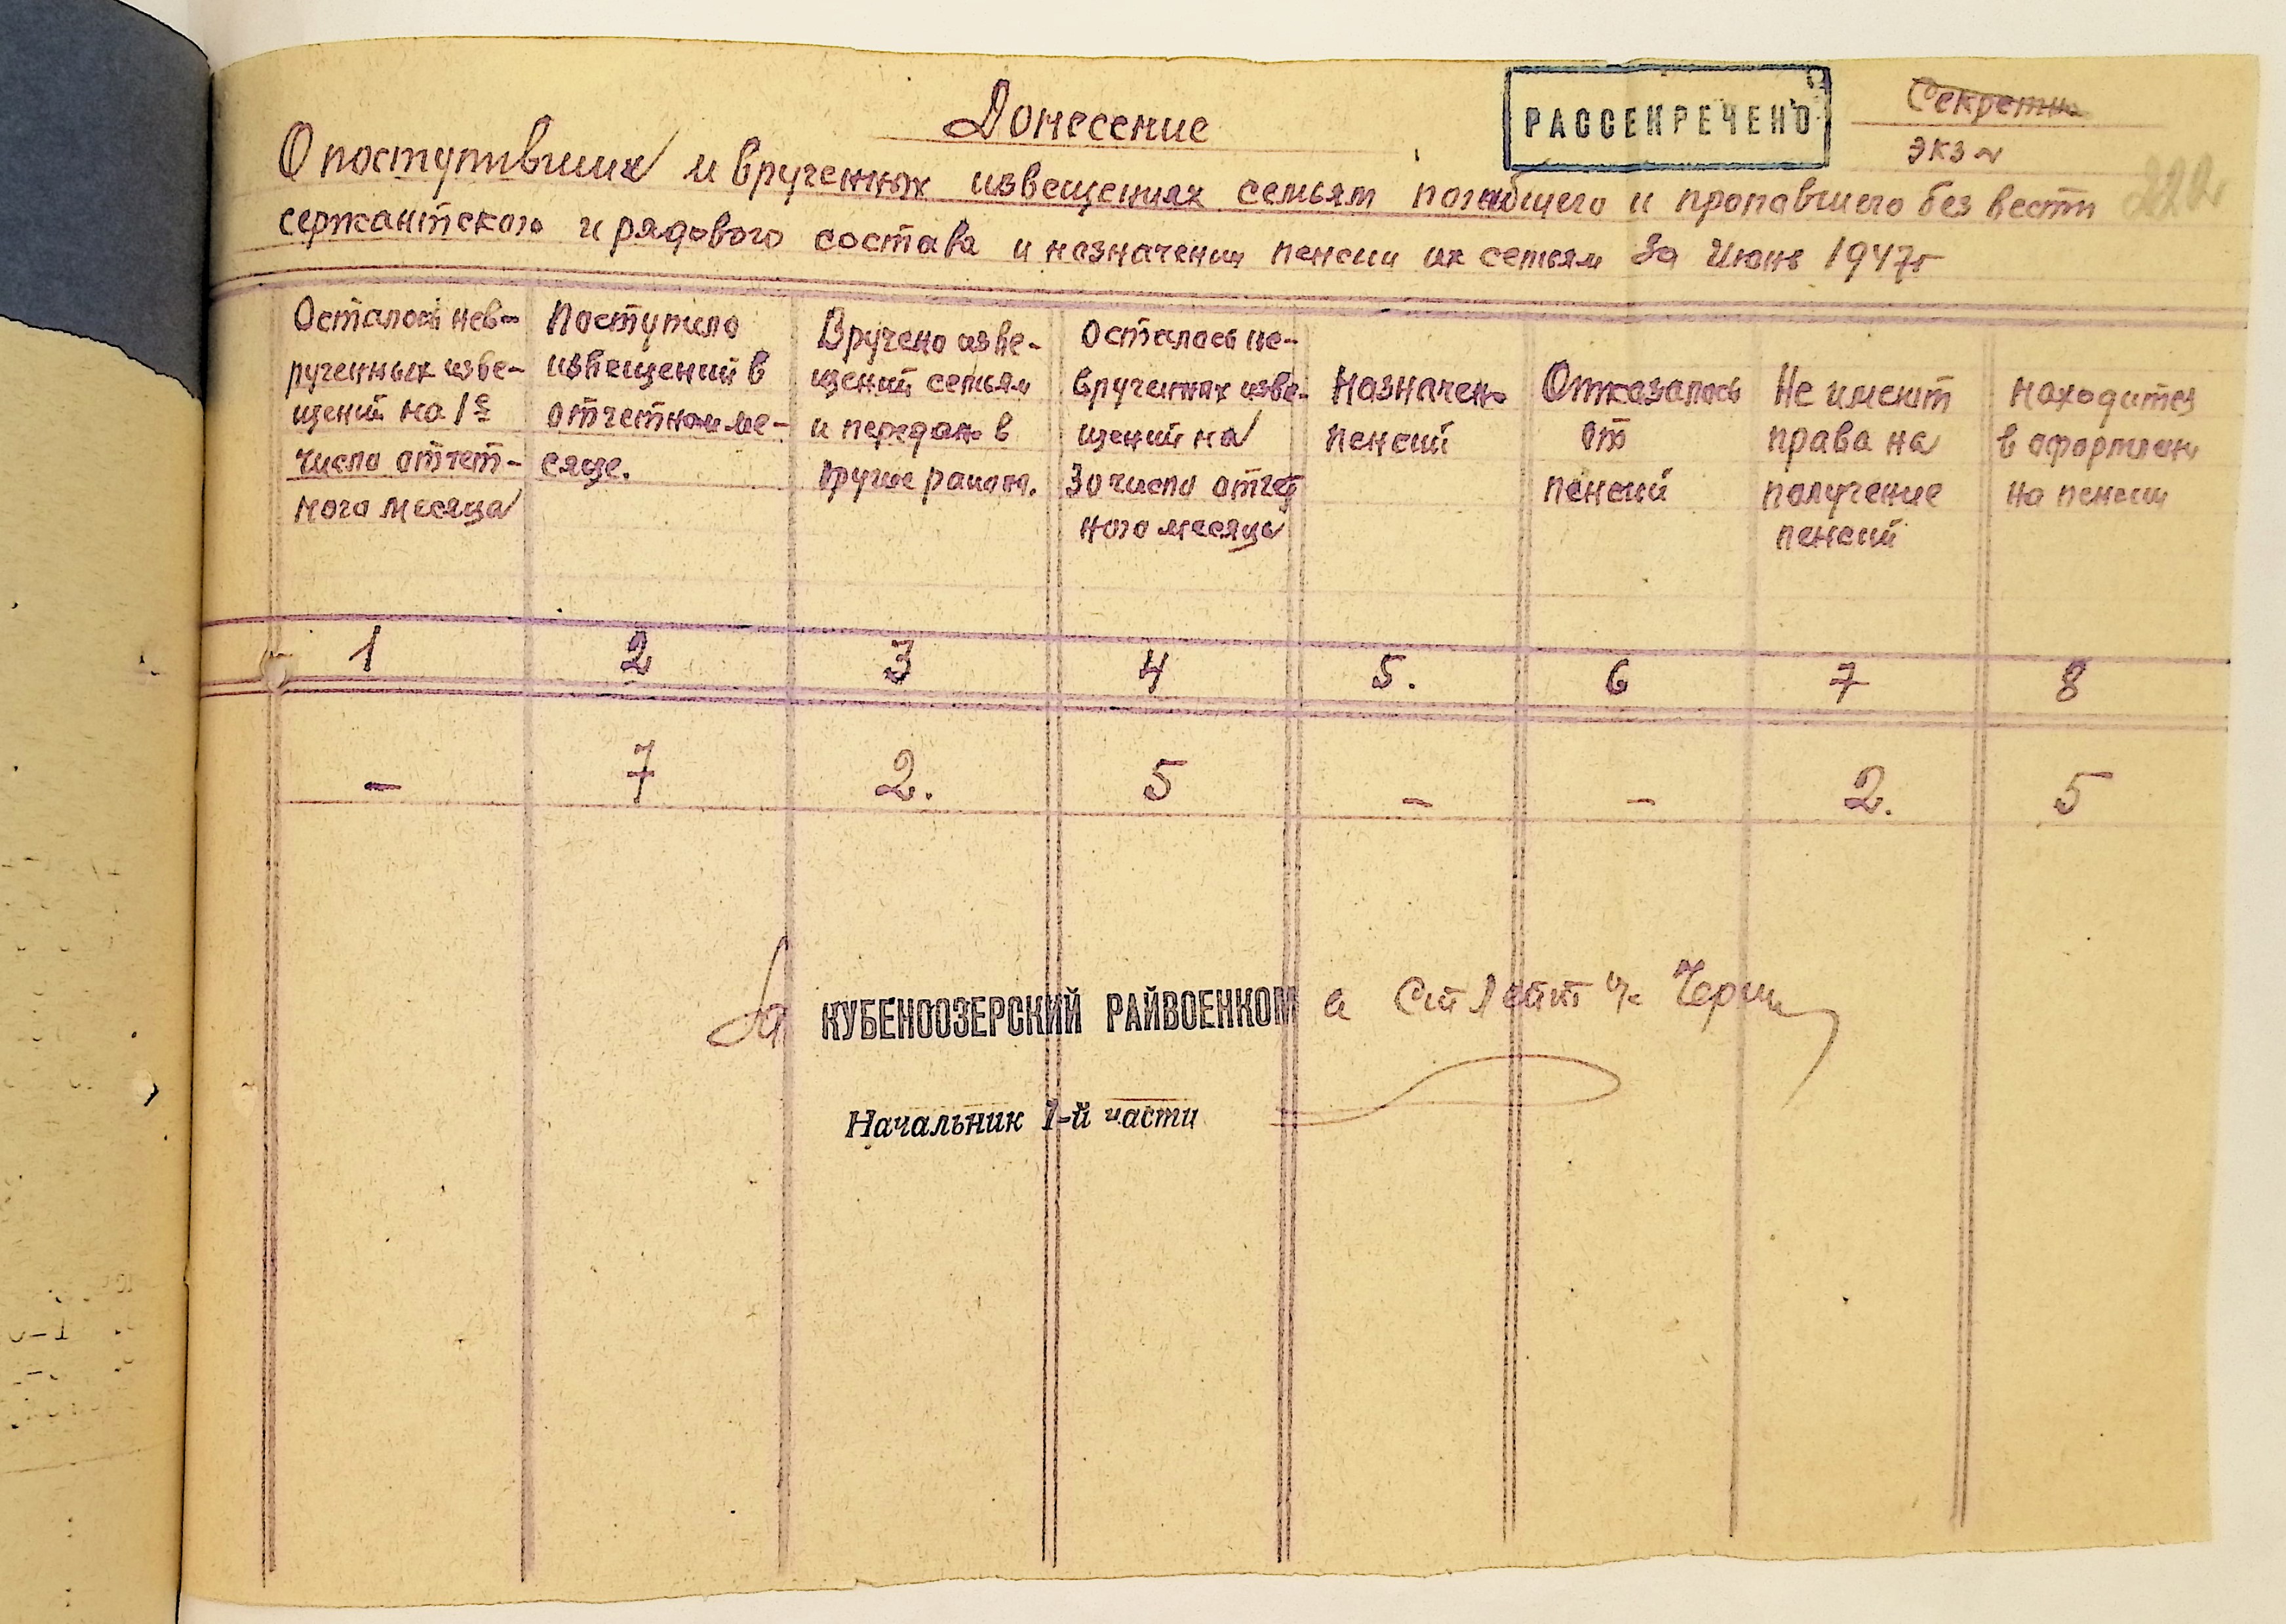 РАССЕКРЕЧЕНО
Секретно
экз №
Донесение
О поступивших и врученных извещениях семьям погибшего и пропавшего без вести
сержантского и рядового состава и назначении пенсии их семьям за Июнь 1947г
Осталось нев-
рученных изве-
щений на 1е
число отчет-
ного месяца
Поступило
извещений в
отчетном ме-
сяце.
Вручено изве-
щений семьям
и передано в
другие район.
Осталось не-
врученных изве-
щений на
30 число отчет
ного месяца
Назначено
пенсий
Отказалось
от
пенсий
Не имеют
права на
получение
пенсий
Находится
в оформлен
на пенсии
1 2 3 4 5. 6 7 8
– 7 2. 5 – – 2. 5
За КУБЕНООЗЕРСКИЙ РАЙВОЕНКОМ а Ст Лейт
Начальник 1-й части